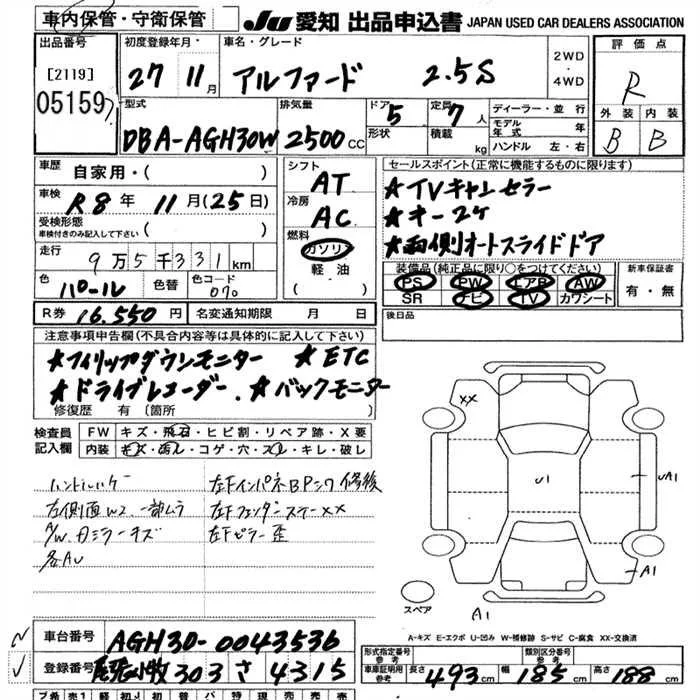 車内保管・守衛保管
JU 愛知 出品申込書 JAPAN USED CAR DEALERS ASSOCIATION
出品番号
[2119]
05159
初度登録年月・
27 11月
車名・グレード
アルファード 2.5S
2WD
・
4WD
評価点
R
外装 内装
B B
型式
DBA-AGH30W
排気量
2500cc
ドア
5
形状
定員
7人
積載 kg
ディーラー・並行
モデル年式 年
ハンドル 左・右
車歴 自家用・( )
車検 R8年 11月(25日)
受検形態
車検付きのみ記入して下さい ( )
走行 9万5千331km
色 パール 色替 色コード 070
R券 16.550円 名変通知期限 月 日
シフト AT
冷房 AC
燃料
ガソリン
軽油
( )
セールスポイント(正常に機能するものに限ります)
★TVキャンセラー
★キー2ケ
★両側オートスライドドア
装備品(純正品に限り○をつけてください)
PS PW エアB AW
SR ナビ TV カワシート
新車保証書
有・無
後日品
注意事項申告欄(不具合内容等は具体的に記入して下さい)
★フィリップダウンモニター ★ETC
★ドライブレコーダー. ★バックモニター
修復歴 有〔箇所
検査員記入欄
FW キズ・飛石・ヒビ割・リペア跡・X要
内装 キズ・汚レ・コゲ・穴・スレ・キレ・破レ
ハンドルハゲ 左FインパネBPシワ修後
左側面W2.一部ムラ 左Fフェンダーステー××
A/W.カミラーキズ 左Fピラー歪
各AU
XX
U1
UA1
A1
A1
スペア
A-キズ E-エクボ U-凹み W-補修跡 S-サビ C-腐食 XX-交換済
車台番号 AGH30-0043536
登録番号 尾張小牧 303 さ 4315
形式指定番号
参考
類別区分番号
参考
車庫証明用
参考
長さ 493cm 幅 185cm 高さ 188cm